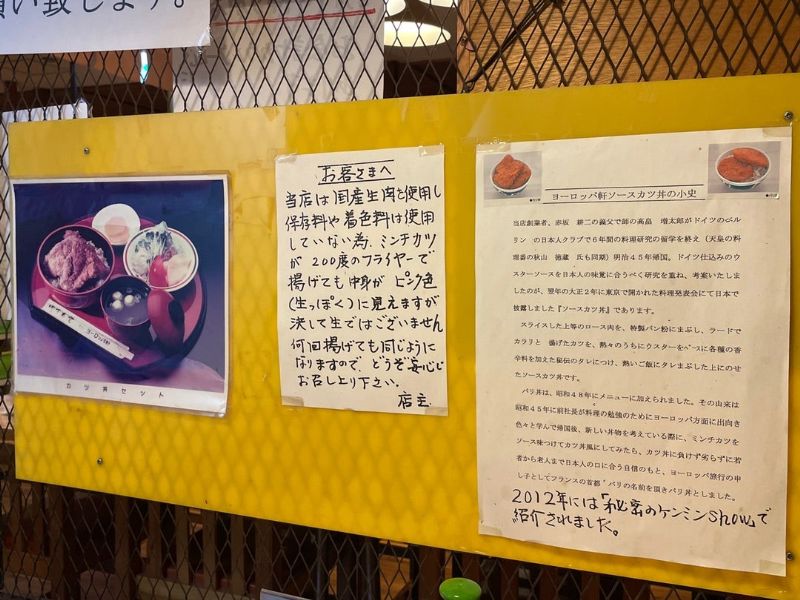 願い致します。
カツ丼セット
お客さまへ
当店は国産生肉を使用し
保存料や着色料は使用
していない為、ミンチカツ
が200度のフライヤーで
揚げても中身がピンク色
(生っぽく)に見えますが
決して生ではございません
何回揚げても同じように
なりますので、どうぞ安心し
お召し上り下さい。
店主
ヨーロッパ軒ソースカツ丼の小史
当店創業者、赤坂 耕二の義父で師の高畠 増太郎がドイツのベル
リン の日本人クラブで6年間の料理研究の留学を終え(天皇の料
理番の秋山 徳蔵 氏も同期)明治45年帰国。ドイツ仕込みのウ
スターソースを日本人の味覚に合うべく研究を重ね、考案いたしま
したのが、翌年の大正2年に東京で開かれた料理発表会にて日本で
披露しました『ソースカツ丼』であります。
スライスした上等のロース肉を、特製パン粉にまぶし、ラードで
カラリと 揚げたカツを、熱々のうちにウスターをベースに各種の香
辛料を加えた秘伝のタレにつけ、熱いご飯にタレまぶした上にのせ
たソースカツ丼です。
パリ丼は、昭和48年にメニューに加えられました。その由来は
昭和45年に前社長が料理の勉強のためにヨーロッパ方面に出向き
色々と学んで帰国後、新しい丼物を考えている際に、ミンチカツを
ソース味つけてカツ丼風にしてみたら、カツ丼に負けず劣らずに若
者から老人まで日本人の口に合う自信のもと、ヨーロッパ旅行の申
し子としてフランスの首都'パリの名前を頂きパリ丼としました。
2012年には「秘密のケンミンShow」で
紹介されました。